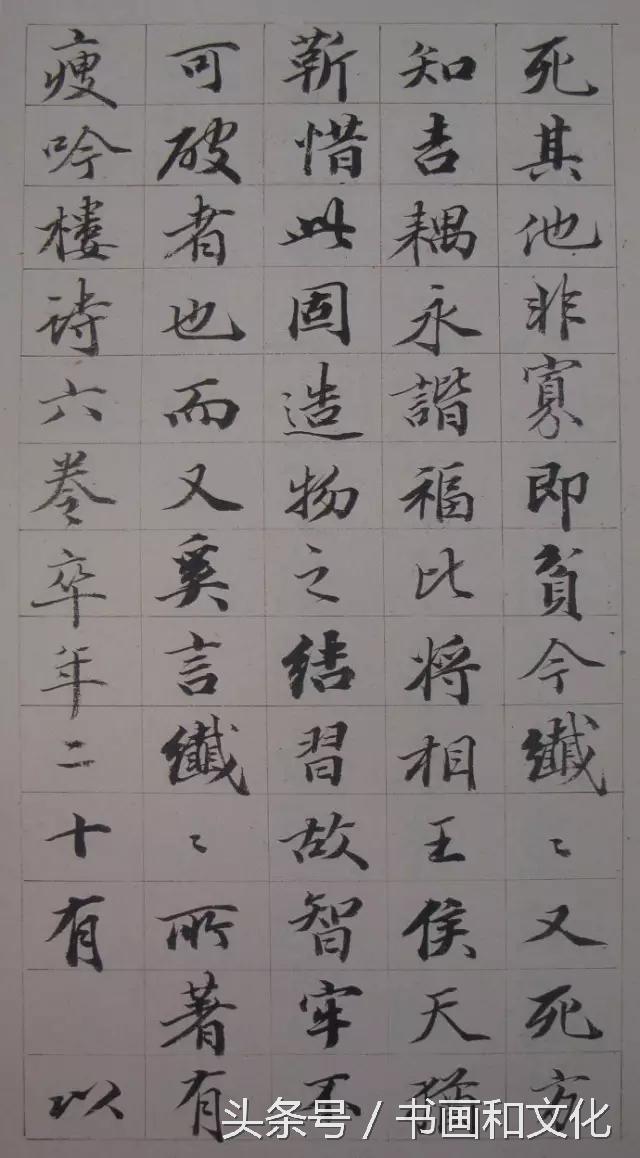 死其他非寡即貧今纖〻又死方
知吉耦永諧福比将相王侯天猶
靳惜此固造物之结習故智牢不
可破者也而又奚言纖〻所著有
瘦吟樓诗六卷卒年二十有 以
头条号 / 书画和文化